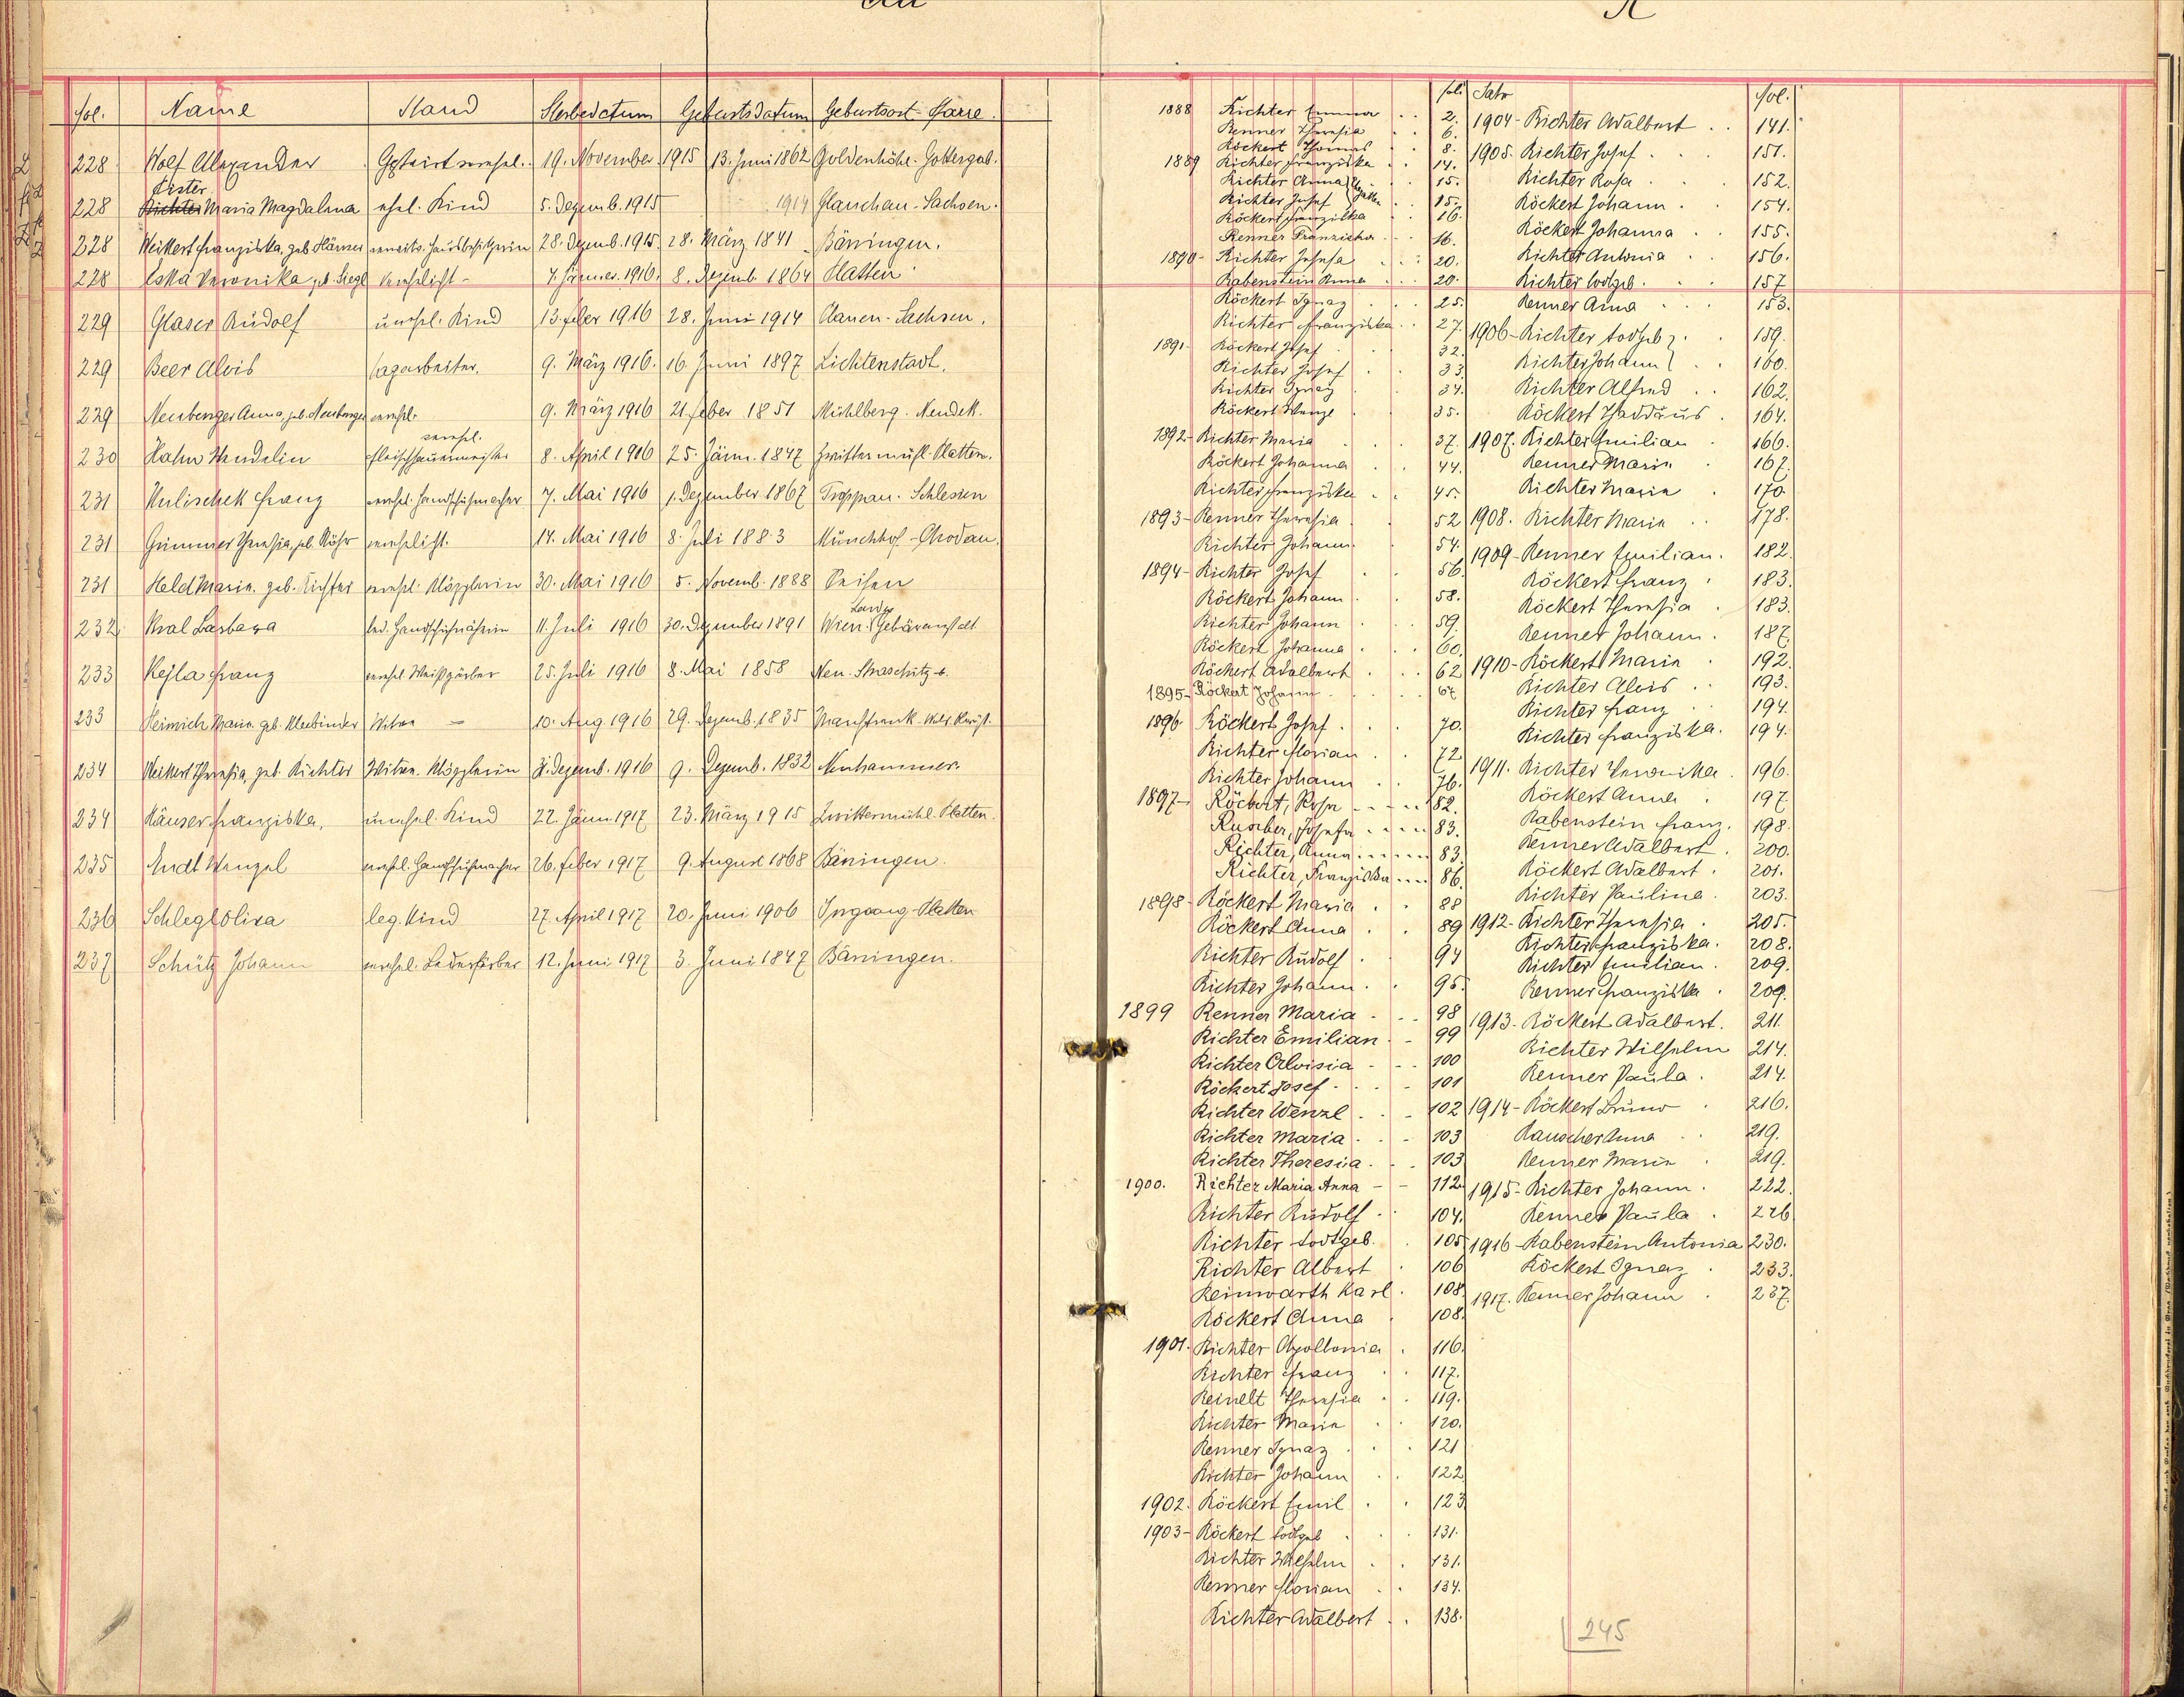 R
fol. Name Stand Sterbedatum Geburtsdatum Geburtsort-Pfarre.
228 Wolf Alexander Gastwirt verehel. 19. November 1915 13. Juni 1862 Goldenhöhe - Gottesgab.
Pister
228 Richter Maria Magdalena ehel. Kind 5. Dezemb. 1915 1914 Glauchau - Sachsen.
228 Weikert Franziska, geb. verwitw. Hausbesitzerin 28. Dezemb. 1915 28. März 1841 Bäringen.
228 Veronika geb. Siegl verehelicht - 7. Jänner. 1916. 8. Dezemb 1864 Platten
229 Glaser Rudolf unehel. Kind 13. feber 1916 28. Juni 1914 Sachsen.
229 Beer Alois Tagarbeiter. 9. März 1916. 16. Juni 1897 Lichtenstadt.
229 Neuberger Anna, geb. Neuberger verehel. 9. März 1916 21. feber 1851 Mühlberg - Neudek.
verehel.
230 Hahn Wendelin Fleischhauermeister 8. April 1916 25. Jänn. 1847 Zwittermühl-Platten.
231 Kulischek Franz verehel. Handschuhmacher 7. Mai 1916 1. Dezember 1867 Troppau - Schlesien
231 Grimmer Theresia, geb. Röhr verehelicht. 14. Mai 1916 8. Juli 1883 Münchhof - Chodau.
231 Held Maria. geb. Richter verehel. Klöpplerin 30. Mai 1916 5. Novemb. 1888 Seifen
Landes
232 Kral Barbara led. Handschuhnäherin 11. Juli 1916 30. Dezember 1891 Wien. Gebäranstalt
233 Hejla Franz verehel. Weißgärber 25. Juli 1916 8. Mai 1858 Neu-Straschitz
233 Heinrich Maria. geb. Kleebinder Witwe - 10. Aug 1916 29. Dezemb. 1835
234 Weikert Theresia, geb. Richter Witwe. Klöpplerin Dezemb. 1916 9. Dezemb. 1832 Neuhammer.
234 Häuser Franziska, unehel. Kind 22. Jänn. 1917 23. März 1915 Zwittermühl-Platten.
235 Andl Wenzel verehel. Handschuhmacher 26. feber 1917 9. August 1868 Bäringen.
236 Schlegl Olira leg. Kind 27. April 1917 20. Juni 1906 Irrgang-Platten
237 Schütz Johann verehel. Lederfärber 12. Juni 1917 3. Juni 1847 Bäringen.
R
fol.
1888 Richter Emma 2.
Renner Theresia 6.
Röckert Thomas 8.
1889 Richter Franziska 14.
Richter Anna 15.
Richter Josef 15.
Röckert Franziska 16.
Renner Franziska 16.
1890 - Richter Josefa 20.
Rabenstein Anna 20.
Röckert Ignaz 25.
Richter Franziska 27.
1891 - Röckert Josef 32.
Richter Josef 33.
Richter Ignaz 34.
Röckert Wenzl 35.
1892 - Richter Maria 37.
Röckert Johanna 44.
Richter Franziska 45.
1893 - Renner Theresia 52
Richter Johann. 54.
1894 - Richter Josef 56.
Röckert Johann 58.
Richter Johann 59.
Röckert Johanna 60.
Röckert Adalbert 62
1895 - Röckert Johann 67
1896. Röckert Josef 70.
Richter Florian 72
Richter Johann 76.
1897 - Röckert, Rosa 82.
Rauscher, Josefa 83.
Richter, Anna 83.
Richter, Franziska 86.
1898 - Röckert Maria 88
Röckert Anna 89
Richter Rudolf 94
Richter Johann. 95.
1899 Renner Maria 98
Richter Emilian 99
Richter Aloisia 100
Röckert Josef 101
Richter Wenzl 102
Richter Maria 103
Richter Theresia 103
1900. Richter Maria Anna 112
Richter Rudolf 104.
Richter todtgeb. 105
Richter Albert 106
Reinwarth Karl. 108.
Röckert Anna 108.
1901. Richter Apollonia 116.
Richter Franz 117.
Reinelt Theresia 119.
Richter Maria 120.
Renner Ignaz 121
Richter Johann 122
1902. Röckert Emil 123
1903 - Röckert todtgeb 131.
Richter Wilhelm 131.
Renner Florian 134.
Richter Adalbert 138.
Jahr fol.
1904 - Richter Adalbert 141.
1905. Richter Josef 151.
Richter Rosa 152.
Röckert Johann 154.
Röckert Johanna 155.
Richter Antonia 156.
Richter todtgeb. 157
Renner Anna 153.
1906 - Richter todtgeb 159.
Richter Johann 160.
Richter Alfred 162.
Röckert Thaddäus 164.
1907. Richter Emilian 166.
Renner Maria 167.
Richter Maria 170
1908. Richter Maria 178.
1909 - Renner Emilian. 182.
Röckert Franz 183.
Röckert Theresia 183.
Renner Johann. 187.
1910 - Röckert Maria 192.
Richter Alois 193.
Richter Franz 194.
Richter Franziska. 194.
1911. Richter Veronika 196.
Röckert Anna 197.
Rabenstein Franz. 198.
Renner Adalbert. 200.
Röckert Adalbert 201.
Richter Paulina 203.
1912 - Richter Theresia 205.
Richter Franziska. 208.
Richter Emilian. 209.
Renner Franziska 209.
1913 - Röckert Adalbert. 211.
Richter Wilhelm 214.
Renner Paula. 214.
1914 - Röckert Bruno 216.
Rauscher Anna 219.
Renner Maria 219.
1915 - Richter Johann. 222.
Renner Paula 226
1916 - Rabenstein Antonia 230.
Röckert Ignaz 233.
1917. Renner Johann 237.
245